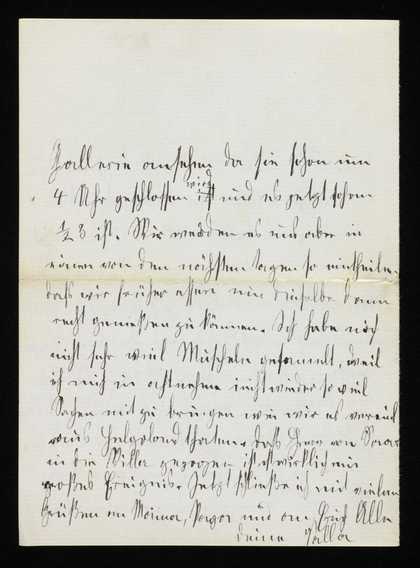 Gallerie ansehen da sie schon um
4 Uhr geschlossen wird und es jetzt schon
½ 3 ist. Wir werden es uns aber in
einen von den nächsten Tagen so eintheilen,
daß wir früher essen um dieselbe dann
recht genießen zu können. Ich habe noch
nicht sehr viel Muscheln gesammelt, weil
ich mich in acht nehme nicht wieder so viel
Sachen mit zu bringen wie wir es voriges
aus Helgoland thaten. daß Herr von
in die Villa gezogen ist ist wirklich ein
großes Ereignis. Jetzt schließe ich mit vielen
Grüßen an Mama, Papa und an Euch Alle
deine